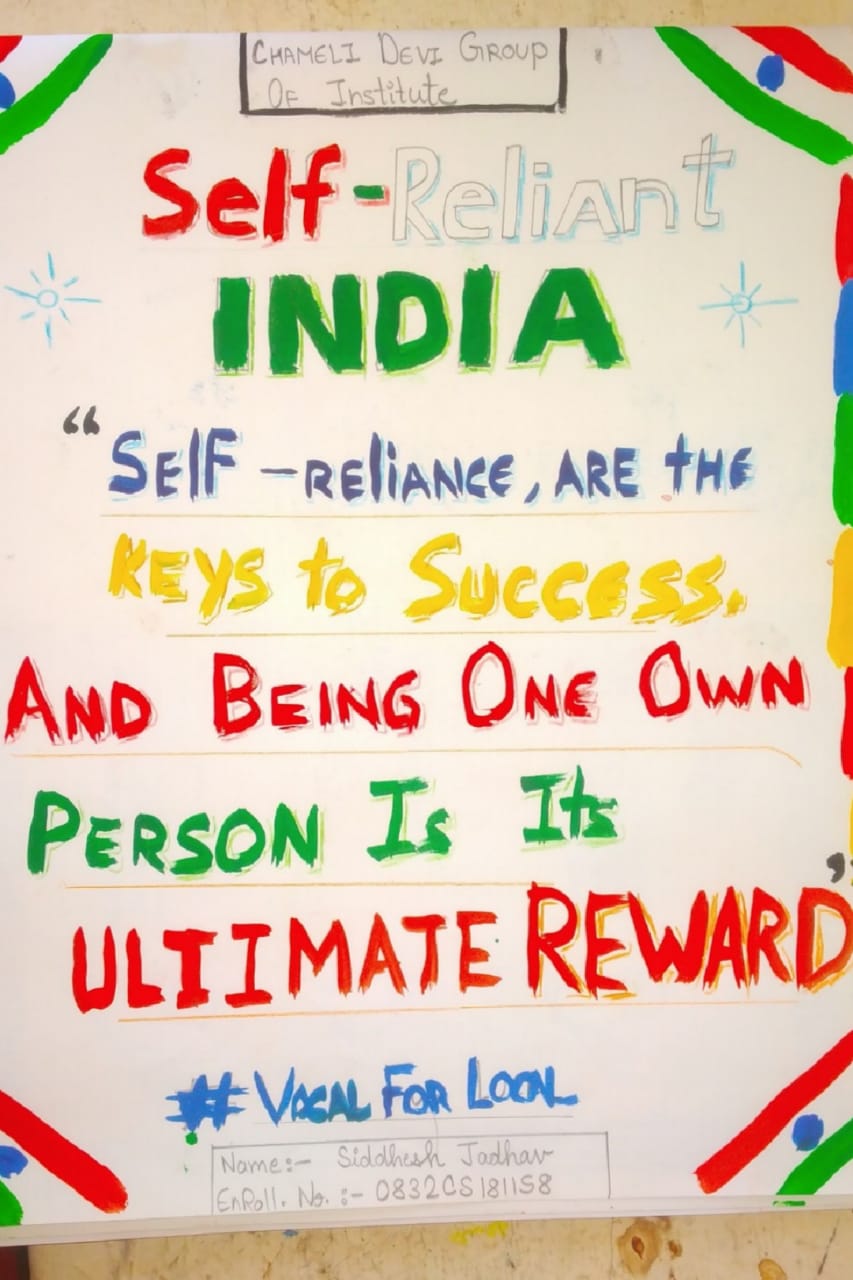 CHAMELI DEVI GROUP
OF Institute
Self-Reliant
INDIA
“SElF -RElIANCE, ARE tHE
KEYS to SUCCESS.
AND BEING ONE OWN
PERSON Is Its
ULTIMATE REWARD”
# VOCAL FOR LOCAL
Name:- Siddhesh Jadhav
EnRoll. No. :- 0832CS181158